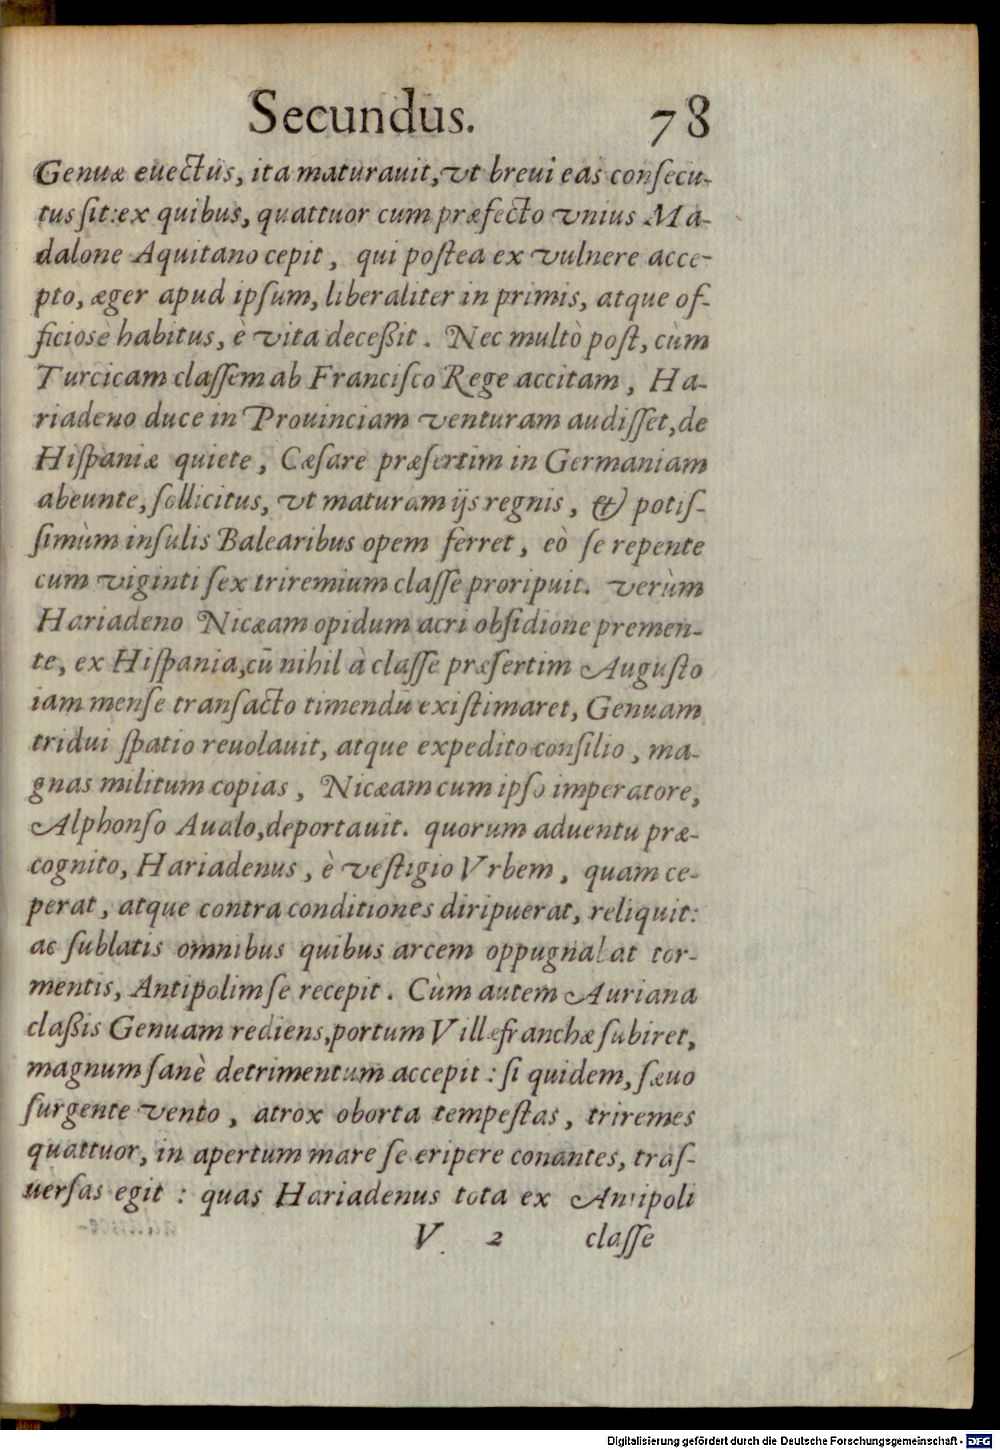 Secundus. 78
Genuæ euectus, ita maturauit, vt breui eas consecu-
tus sit: ex quibus, quattuor cum præfecto vnius Ma-
dalone Aquitano cepit, qui postea ex vulnere acce-
pto, æger apud ipsum, liberaliter in primis, atque of-
ficiosè habitus, è vita deceßit. Nec multò post, cùm
Turcicam classem ab Francisco Rege accitam, Ha-
riadeno duce in Prouinciam venturam audisset, de
Hispaniæ quiete, Cæsare præsertim in Germaniam
abeunte, sollicitus, vt maturam ijs regnis, & potis-
simùm insulis Balearibus opem ferret, eò se repente
cum viginti sex triremium classe proripuit. verùm
Hariadeno Nicæam opidum acri obsidione premen-
te, ex Hispania, cū nihil à classe præsertim Augusto
iam mense transacto timendū existimaret, Genuam
tridui spatio reuolauit, atque expedito consilio, ma-
gnas militum copias, Nicæam cum ipso imperatore,
Alphonso Aualo, deportauit. quorum aduentu præ-
cognito, Hariadenus, è vestigio Vrbem, quam ce-
perat, atque contra conditiones diripuerat, reliquit:
ac sublatis omnibus quibus arcem oppugnabat tor-
mentis, Antipolim se recepit. Cùm autem Auriana
claßis Genuam rediens, portum Villæfranchæ subiret,
magnum sanè detrimentum accepit: si quidem, sæuo
surgente vento, atrox oborta tempestas, triremes
quattuor, in apertum mare se eripere conantes, trās-
uersas egit: quas Hariadenus tota ex Antipoli
V 2 classe
Digitalisierung gefördert durch die Deutsche Forschungsgemeinschaft - DFG